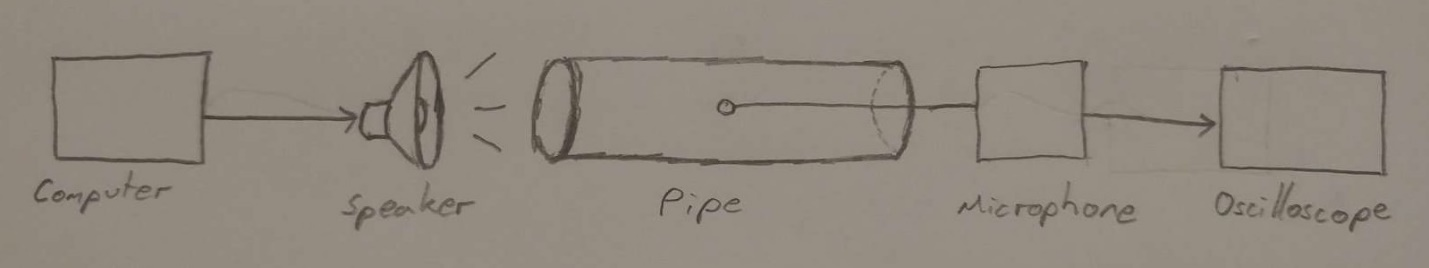 Computer
Speaker
Pipe
Microphone
Oscilloscope